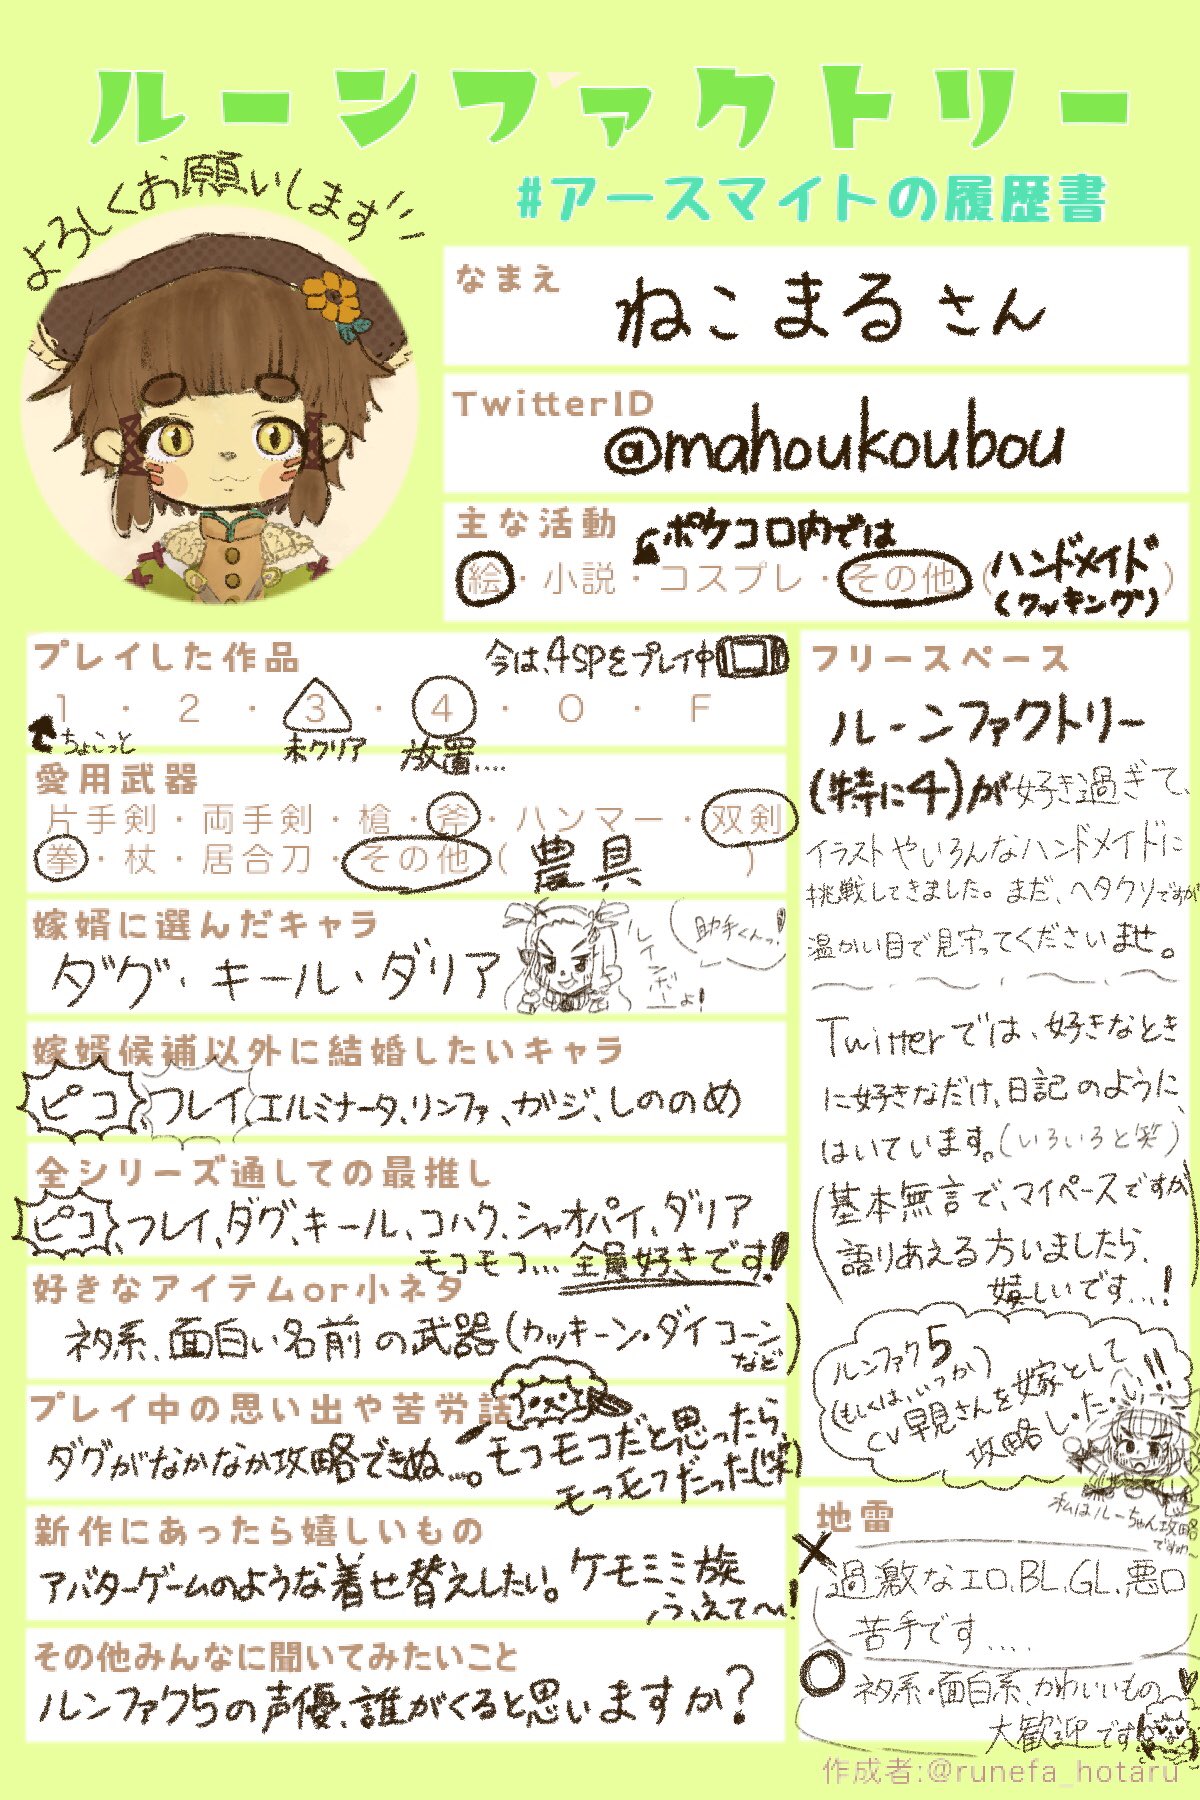 ルーンファクトリー
#アースマイトの履歴書
よろしくお願いします
なまえ
ねこまるさん
TwitterID
@mahoukoubou
主な活動
ポケコロ内では
絵・小説・コスプレ・その他(ハンドメイド)
(クッキング)
プレイした作品
今は、4SPをプレイ中
1・2・3・4・O・F
ちょこっと
未クリア
放置....
愛用武器
片手剣・両手剣・槍・斧・ハンマー・双剣
拳・杖・居合刀・その他(農具)
嫁婿に選んだキャラ
ダグ・キール・ダリア
助手くんっ!
レインボーよ!
嫁婿候補以外に結婚したいキャラ
ピコ フレイ エルミナータ、リンファ、ガジ、しののめ
全シリーズ通しての最推し
ピコ、フレイ、ダグ、キール、コハク、シャオパイ、ダリア
モコモコ... 全員好きです!
好きなアイテムor小ネタ
ネタ系、面白い名前の武器(カッキーン・ダイコーンなど)
プレイ中の思い出や苦労話
ダグがなかなか攻略できぬ...。モコモコだと思ったら、
モフモフだった(笑)
新作にあったら嬉しいもの
アバターゲームのような着せ替えしたい。ケモミミ族
ふ、えて〜!
その他みんなに聞いてみたいこと
ルンファク5の声優、誰がくると思いますか?
フリースペース
ルーンファクトリー
(特に4)が好き過ぎて、
イラストやいろんなハンドメイドに
挑戦してきました。まだ、ヘタクソですが
温かい目で見守ってくださいませ。
Twitterでは、好きなとき
に好きなだけ、日記のように、
はいています。(いろいろと笑)
(基本無言で、マイペースですが
語りあえる方いましたら、
嬉しいです...!)
ルンファク5
(もしくは、いつか)
CV早見さんを嫁として
攻略し・た・い!!
私はルーちゃん攻略
ですわ〜
地雷
×
過激なエロ、BL、GL、悪口
苦手です....
○
ネタ系・面白系、かわいいもの
大歓迎です!
作成者:@runefa_hotaru